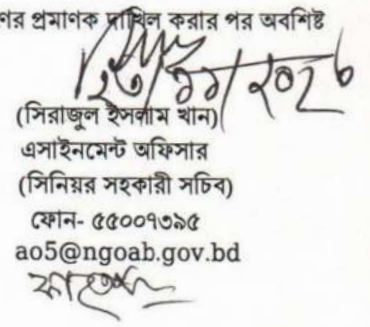 ণের প্রমাণক দাখিল করার পর অবশিষ্ট
(সিরাজুল ইসলাম খান)
এসাইনমেন্ট অফিসার
(সিনিয়র সহকারী সচিব)
ফোন- ৫৫০০৭৩৯৫
ao5@ngoab.gov.bd